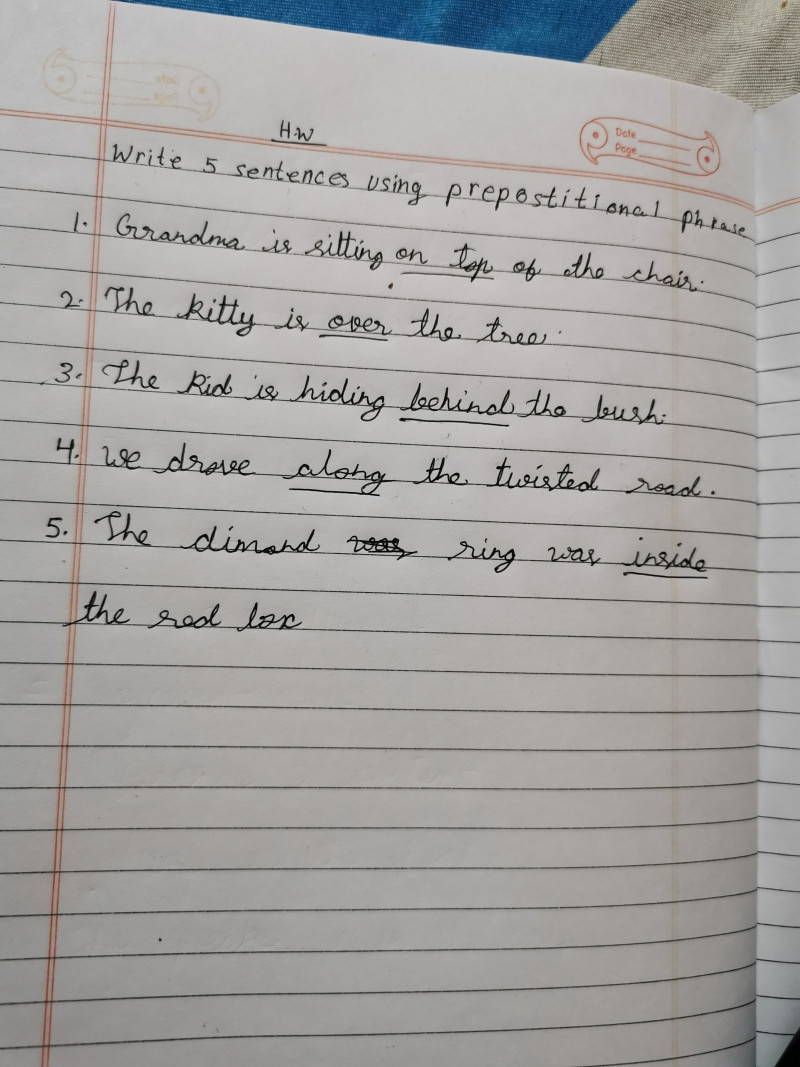 H.W
Date
Page
Write 5 sentences using prepostitional phrase
1. Grandma is sitting on top of the chair.
2. The kitty is over the tree.
3. The kid is hiding behind the bush.
4. we drove along the twisted road.
5. The dimond was ring was inside
the red box